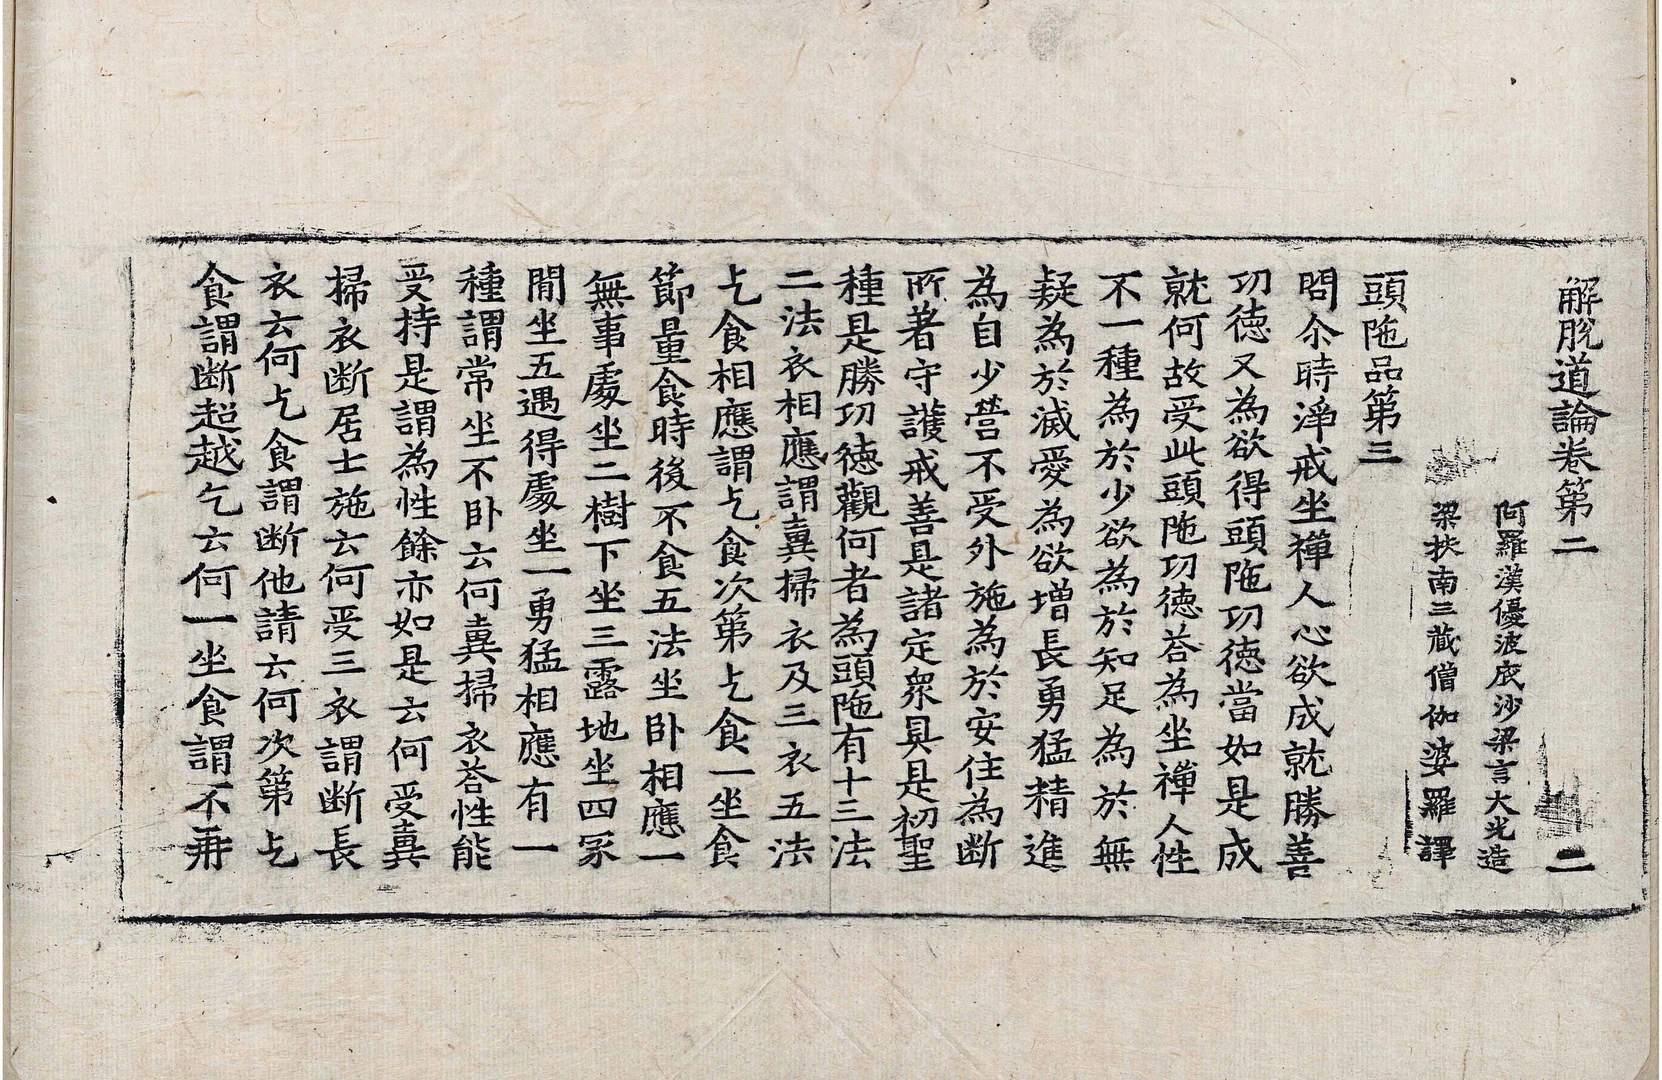 解脫道論卷第二　二
阿羅漢優波底沙梁言大光造
梁扶南三藏僧伽婆羅譯
頭陁品第三
問尒時淨戒坐禪人心欲成就勝善
功徳又為欲得頭陁功徳當如是成
就何故受此頭陁功徳荅為坐禪人性
不一種為於少欲為於知足為於無
疑為於滅愛為欲増長勇猛精進
為自少營不受外施為於安住為断
所著守護戒善是諸定衆具是初聖
種是勝功徳觀何者為頭陁有十三法
二法衣相應謂糞掃衣及三衣五法
乞食相應謂乞食次第乞食一坐食
節量食時後不食五法坐卧相應一
無事處坐二樹下坐三露地坐四冢
閒坐五遇得處坐一勇猛相應有一
種謂常坐不卧云何糞掃衣荅性能
受持是謂為性餘亦如是云何受糞
掃衣断居士施云何受三衣謂断長
衣云何乞食謂断他請云何次第乞
食謂断超越乞云何一坐食謂不再